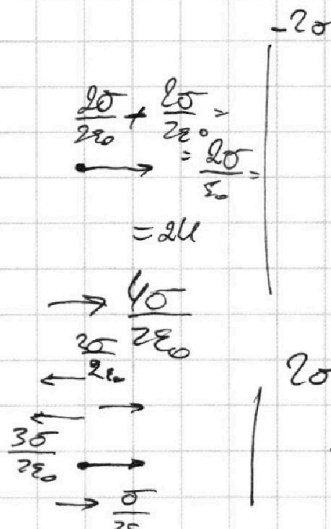 -2σ
2σ/2ε₀ + 2σ/2ε₀ =
= 2σ/ε₀ =
= 2U
4σ/2ε₀
3σ/2ε₀
2σ
3σ/2ε₀
σ